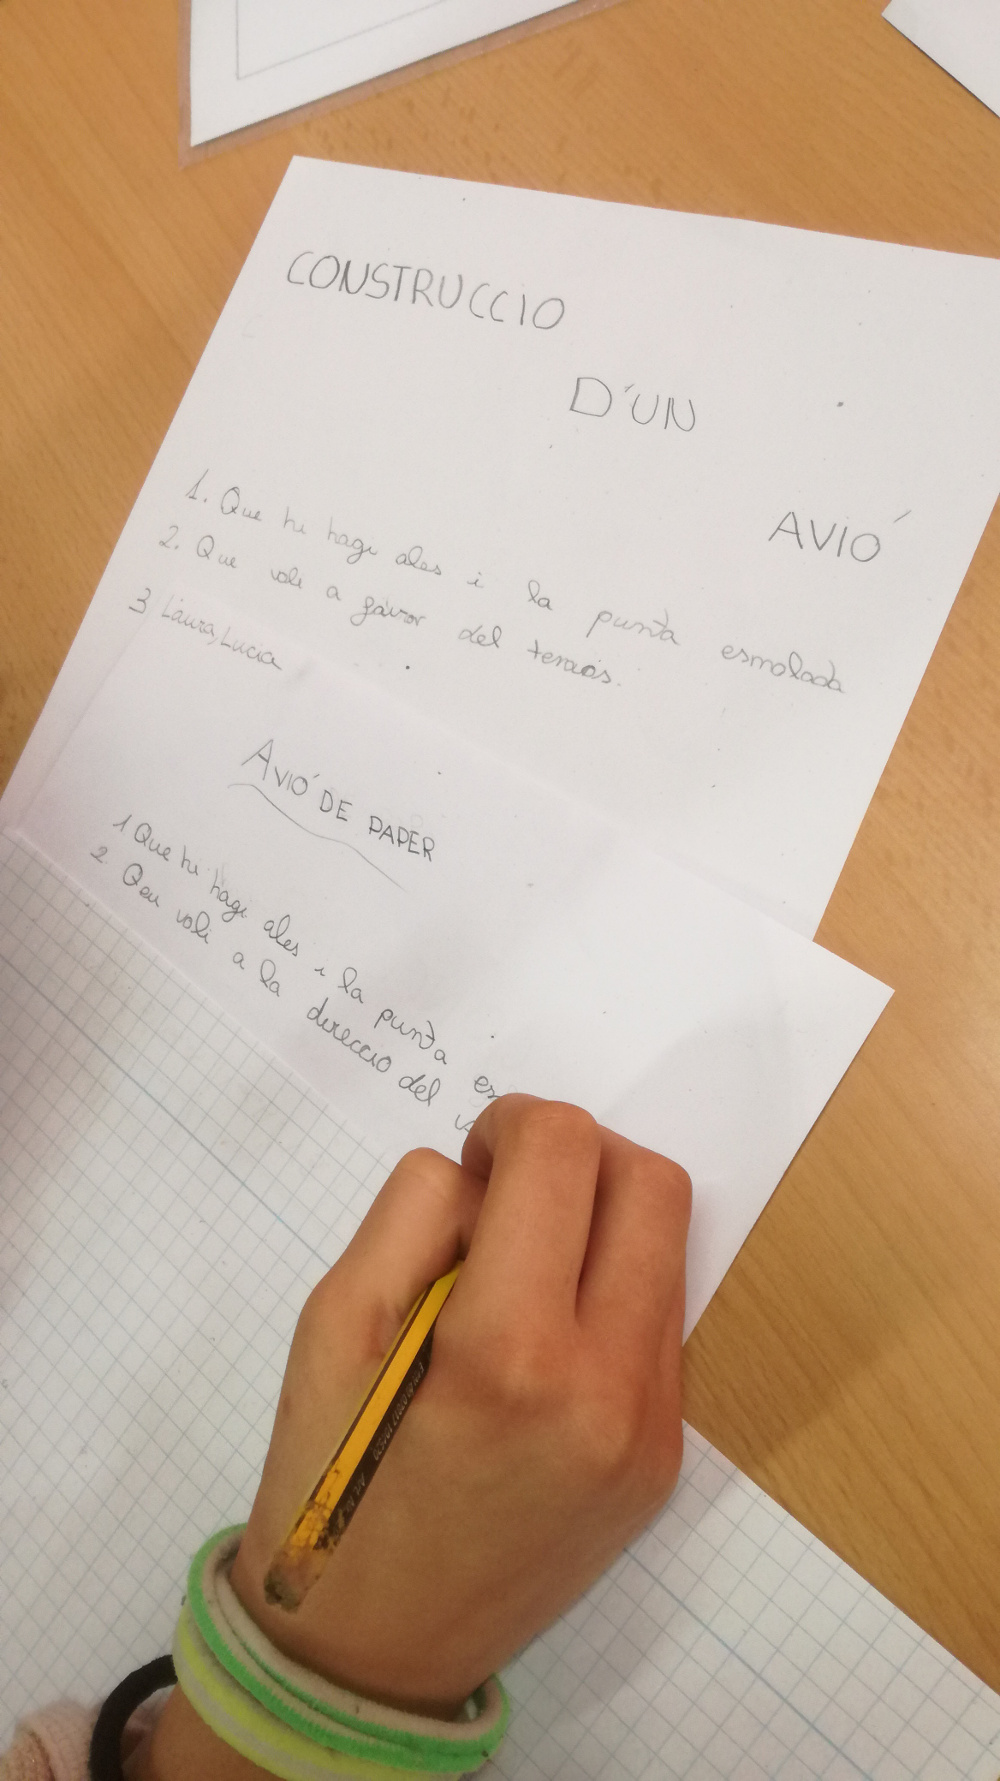 CONSTRUCCIO
D'UN
AVIÓ
1. Que hi hagi ales i la punta esmolada
2. Que voli a favor del
3 Laura, Lucia
AVIÓ DE PAPER
1 Que hi hagi ales i la punta es
2. Qeu voli a la direccio del v